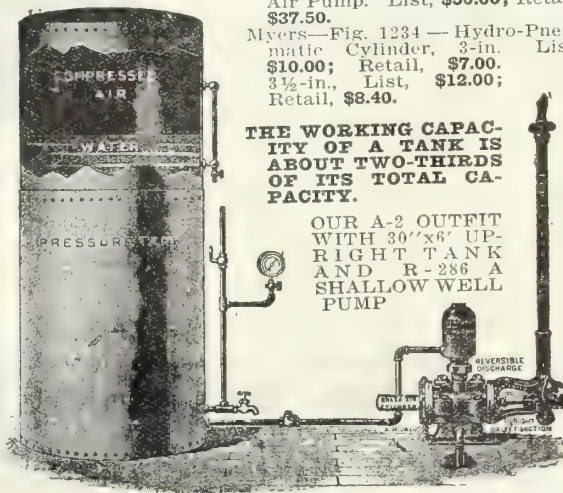 Air Pump. List, $50.00; Retail
$37.50.
Myers—Fig. 1234 — Hydro-Pneu-
matic Cylinder, 3-in. List
$10.00; Retail, $7.00.
3½-in., List, $12.00;
Retail, $8.40.
THE WORKING CAPAC-
ITY OF A TANK IS
ABOUT TWO-THIRDS
OF ITS TOTAL CA-
PACITY.
OUR A-2 OUTFIT
WITH 30"x6' UP-
RIGHT TANK
AND R-286 A
SHALLOW WELL
PUMP
COMPRESSED
AIR
WATER
PRESSURE TANK
REVERSIBLE
DISCHARGE
AIR VALVE